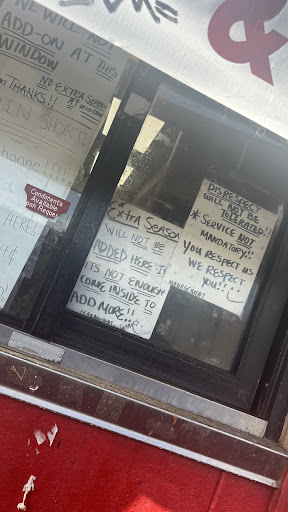 WE WILL NOT
ADD-ON AT THIS
WINDOW
NO EXTRA SEASON
AT WINDOW
THANKS!!
IN SHORT
change!!!!
Condiments
Available
Upon Request
HERE!
4¢
* EXTRA SEASON
WILL NOT BE
ADDED HERE IF
ITS NOT ENOUGH
COME INSIDE TO
ADD MORE!!!
MANAGEMENT
DISRESPECT
WILL NOT BE
TOLERATED!!
* SERVICE NOT
MANDATORY!!
YOU RESPECT US
WE RESPECT
YOU!!
MANAGEMENT
&